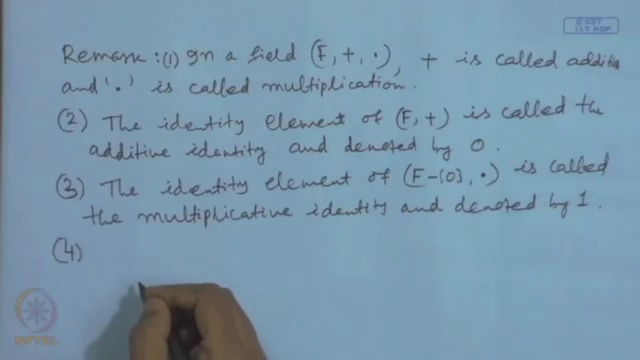 © CET
I.I.T. KGP
Remark : (1) In a field (F, +, ·), + is called additio
and '·' is called multiplication.
(2) The identity element of (F, +) is called the
additive identity and denoted by 0.
(3) The identity element of (F-{0}, ·) is called
the multiplicative identity and denoted by 1.
(4)
NPTEL